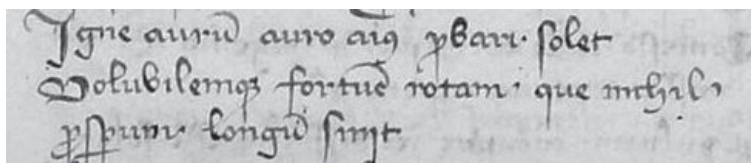 Igne aurū auro aīꝰ ꝓbari solet
Volubilemqꝫ fortūe rotam que nichil
ꝓsꝑum longū sinit